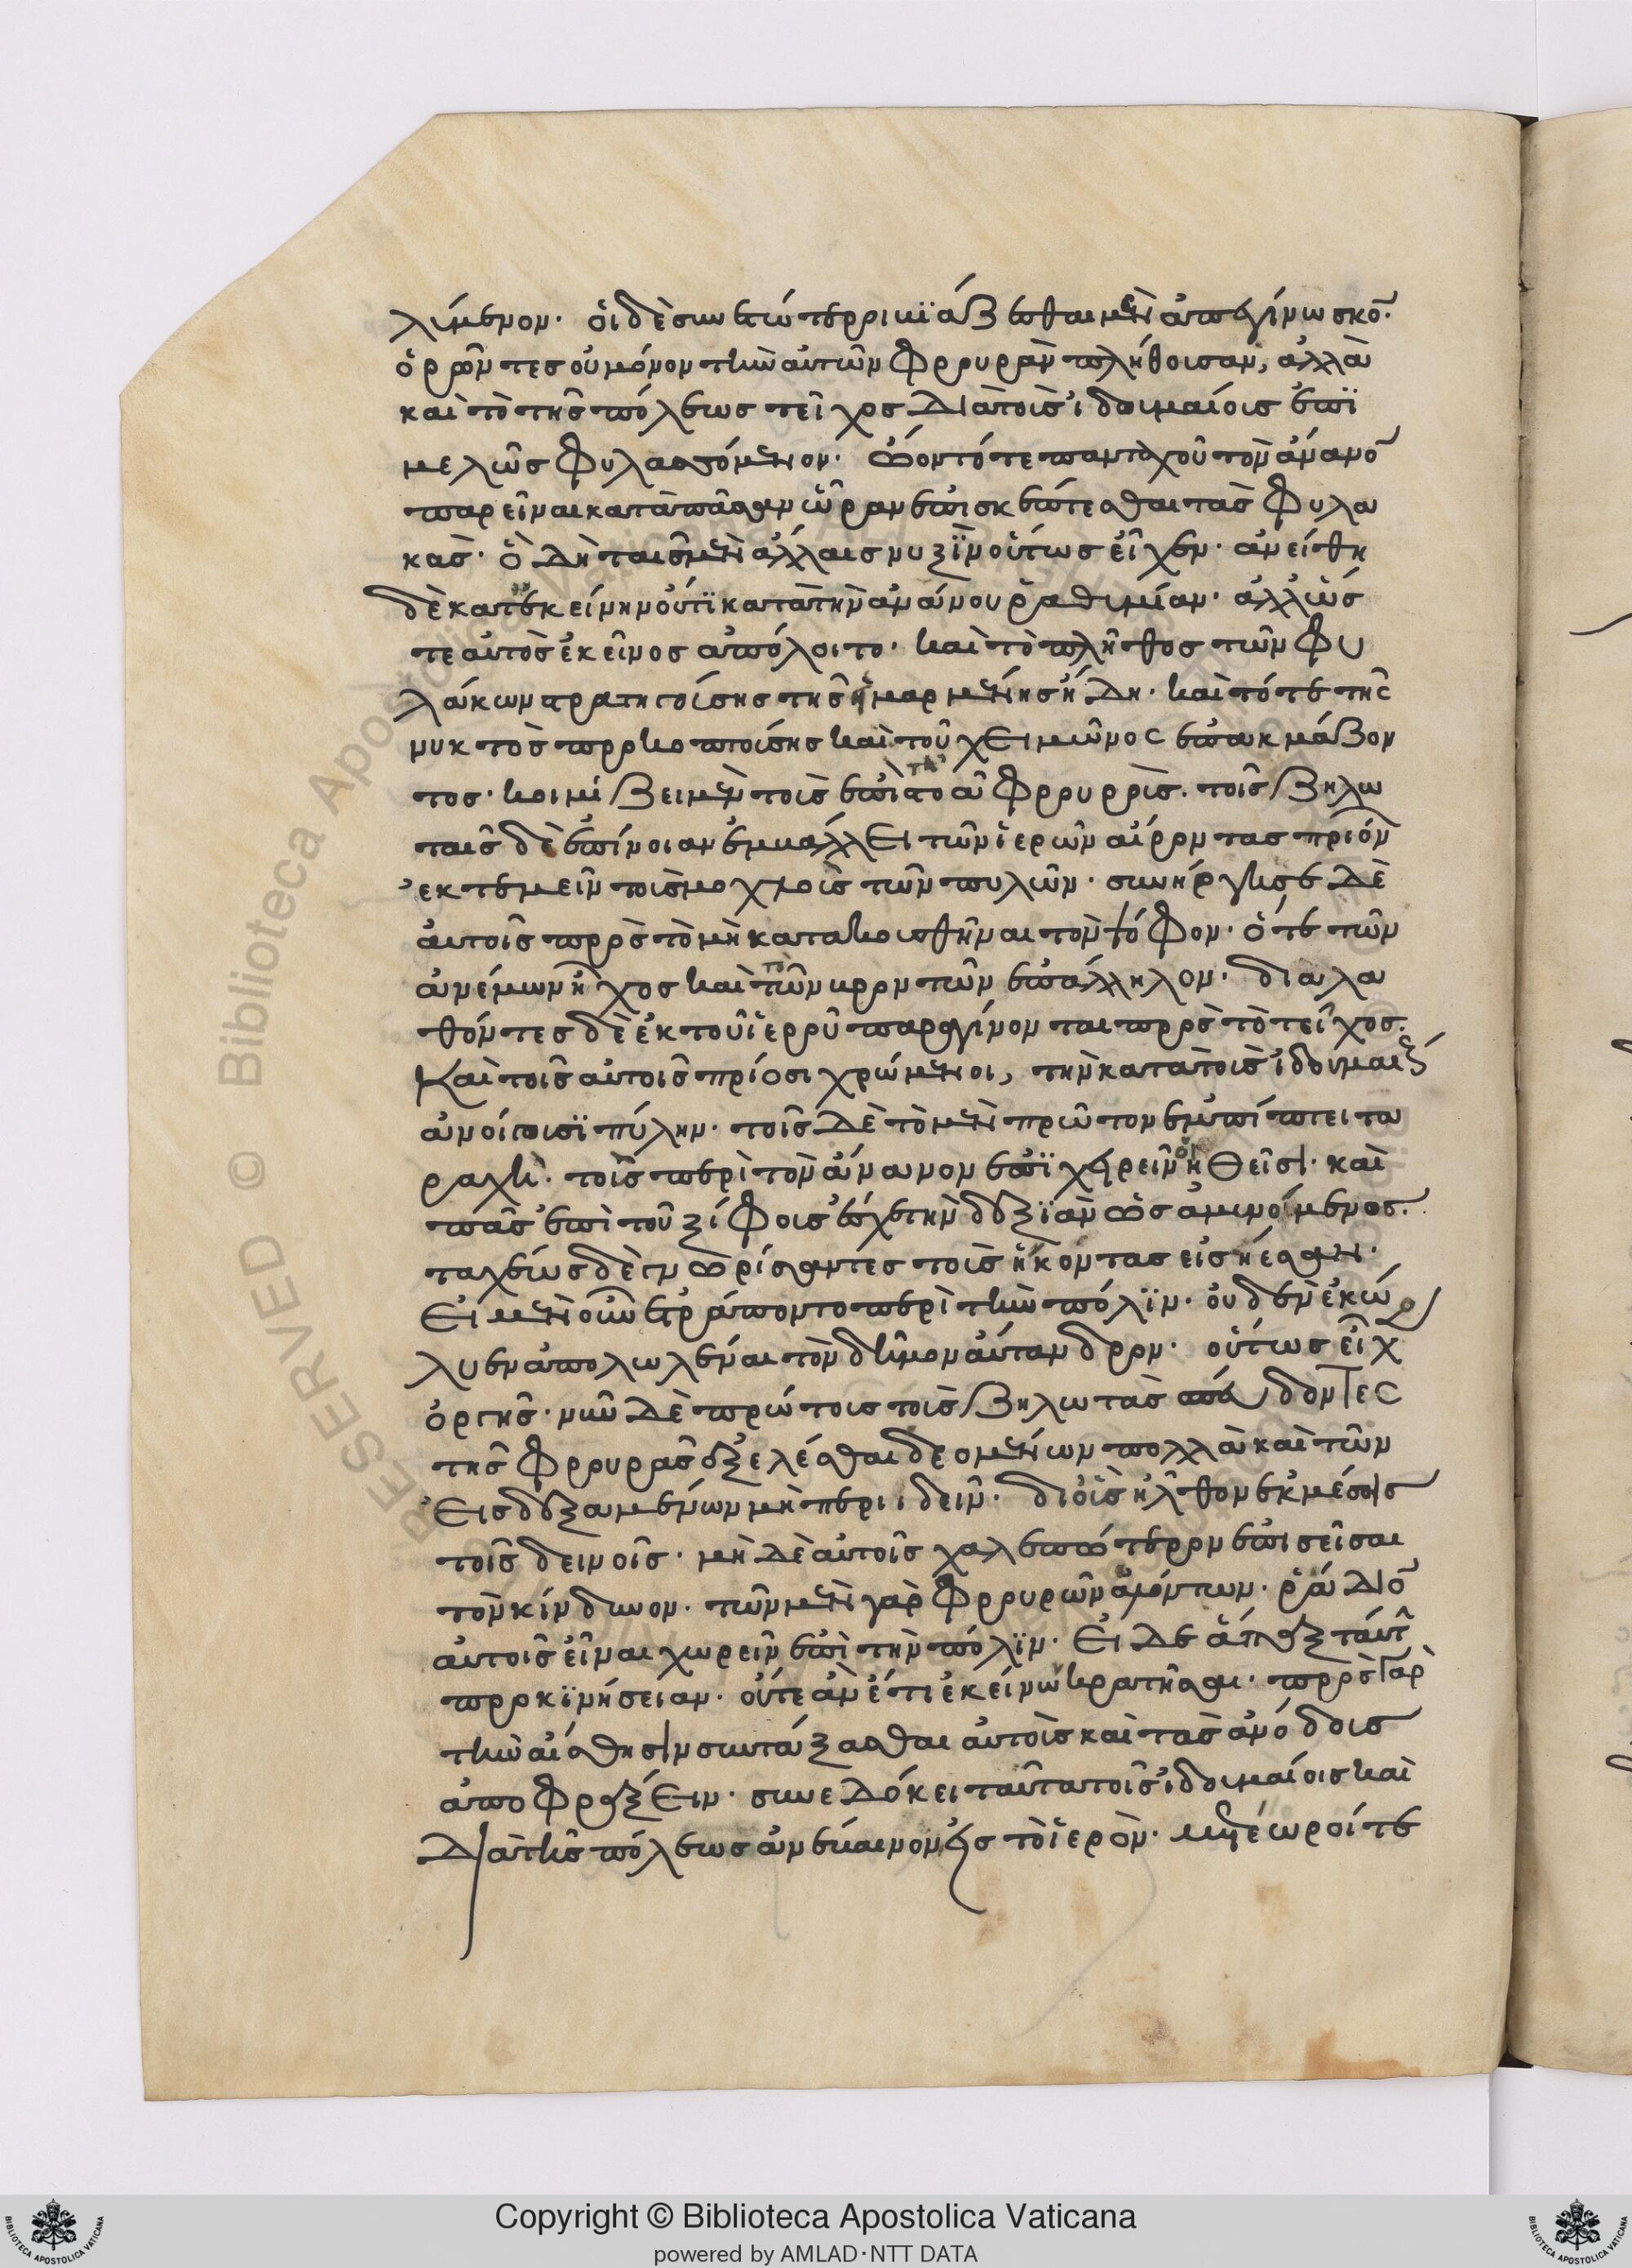 λύμενον· οἱ δὲ συνετώτεροι βιάζεσθαι μὲν ἀπεγίνωσκο̅·
ὁρῶντες οὐ μόνον τὴν αὐτῶν φρουρὰν πλήθουσαν, ἀλλὰ
καὶ τὸ τῆς πόλεως τεῖχος διὰ τοὺς ἰδουμαίους ἐπϊ
μελῶς φυλασσόμενον· ὤοντό τε πανταχοῦ τὸν ἄνανο̅
παρεῖναι κατὰ πᾶσαν ὥραν ἐπισκέπτεσθαι τὰς φυλα
κάς· ὃ δὴ ταῖς μὲν ἄλλαις νυξῒν οὕτως εἶχεν· ἀνείθη
δὲ κατ' ἐκείνην οὔτϊ κατὰ τὴν ἀνάνου ῥαθυμίαν· ἀλλ' ὥς
τε αὐτὸς ἐκεῖνος ἀπόλοιτο· καὶ τὸ πλῆθος τῶν φυ
λάκων στρατηγούσης τῆς εἱμαρμένης ἤδη· καὶ τότε τῆς
νυκτὸς προκοπτούσης καὶ τοῦ χειμῶνος ἐπακμάζον
τος· κοιμίζει μὲν τοὺς ἐπὶ τῆ στοᾶ φρουρούς· τοῖς ζηλω
ταῖς δὲ ἐπίνοιαν ἐμβάλλει τῶν ἱερῶν αἴροντας πριόν
ἐκτεμεῖν τοὺς μοχλοὺς τῶν πυλῶν· συνήργησε δὲ
αὐτοῖς πρὸς τὸ μὴ κατακουσθῆναι τὸν ψόφον· ὅτε τῶν
ἀνέμων ἦχος καὶ τὸ τῶν βροντῶν ἐπάλληλον· διαλα
θόντες δὲ ἐκ τοῦ ἱεροῦ παραγίνονται πρὸς τὸ τεῖχος·
Καὶ τοῖς αὐτοῖς πρίοσι χρώμενοι, τὴν κατὰ τοὺς ἰδουμαίους
ἀνοίγουσϊ πύλην· τοῖς δὲ τὸ μὲν πρῶτον ἐμπίπτει τα
ραχὴ· τοὺς περὶ τὸν ἄνανον ἐπϊχειρεῖν οἰηθεῖσι· καὶ
πᾶς ἐπὶ τοῦ ξίφους ἔσχε τὴν δεξϊὰν ὡς ἀμυνούμενος·
ταχέως δὲ γνωρίσαντες τοὺς ἥκοντας εἰσήεσαν·
Εἰ μὲν οὖν ἐτράποντο περὶ τὴν πόλϊν· οὐδὲν ἐκώ
λυεν ἀπολωλέναι τὸν δῆμον αὔτανδρον· οὕτως εἶχ
ὀργῆς· νῦν δὲ πρώτους τοὺς ζηλωτὰς σπεύδοντες
τῆς φρουρᾶς ἐξελέσθαι δεομένων πολλὰ καὶ τῶν
εἰσδεξαμένων μὴ περιιδεῖν· δι οὓς ἦλθον ἐν μέσοις
τοῖς δεινοῖς· μὴ δὲ αὐτοῖς χαλεπώτερον ἐπισεῖσαι
τὸν κίνδυνον· τῶν μὲν γὰρ φρουρῶν ἁλόντων· ῥάδιο̅
αὐτοῖς εἶναι χωρεῖν ἐπὶ τὴν πόλϊν· Εἰ δε ἅπαξ ταύτ
προκϊνήσειαν· οὔτε ἂν ἔτι ἐκείνων κρατῆσαι· πρὸς γὰρ
τὴν αἴσθησιν συντάξασθαι αὐτοὺς καὶ τὰς ἀνόδους
ἀποφράξειν· συνεδόκει ταῦτα τοῖς ἰδουμαίοις καὶ
διὰ τῆς πόλεως ἀνέβαινον εἰς τὸ ἱερόν· μετέωροί τε